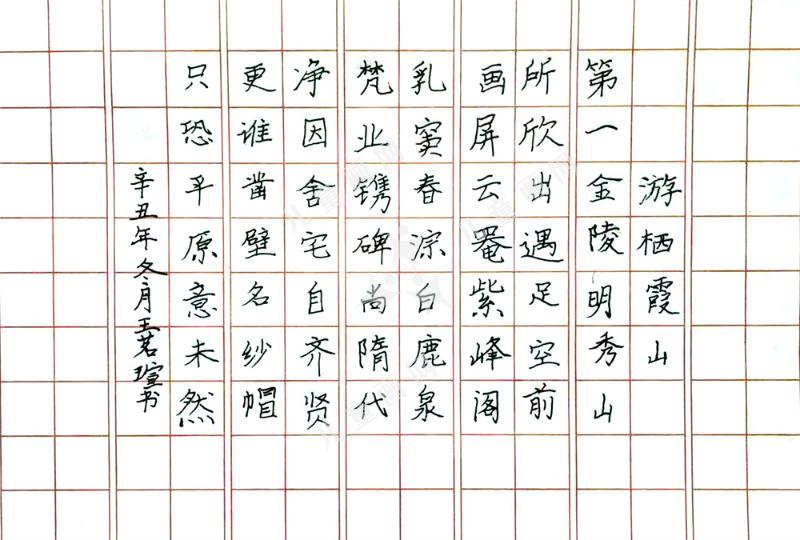 游栖霞山
第一金陵明秀山
所欣出遇足空前
画屏云罨紫峰阁
乳窦春淙白鹿泉
梵业镌碑尚隋代
净因舍宅自齐贤
更谁凿壁名纱帽
只恐平原意未然
辛丑年冬月王茗瑄书